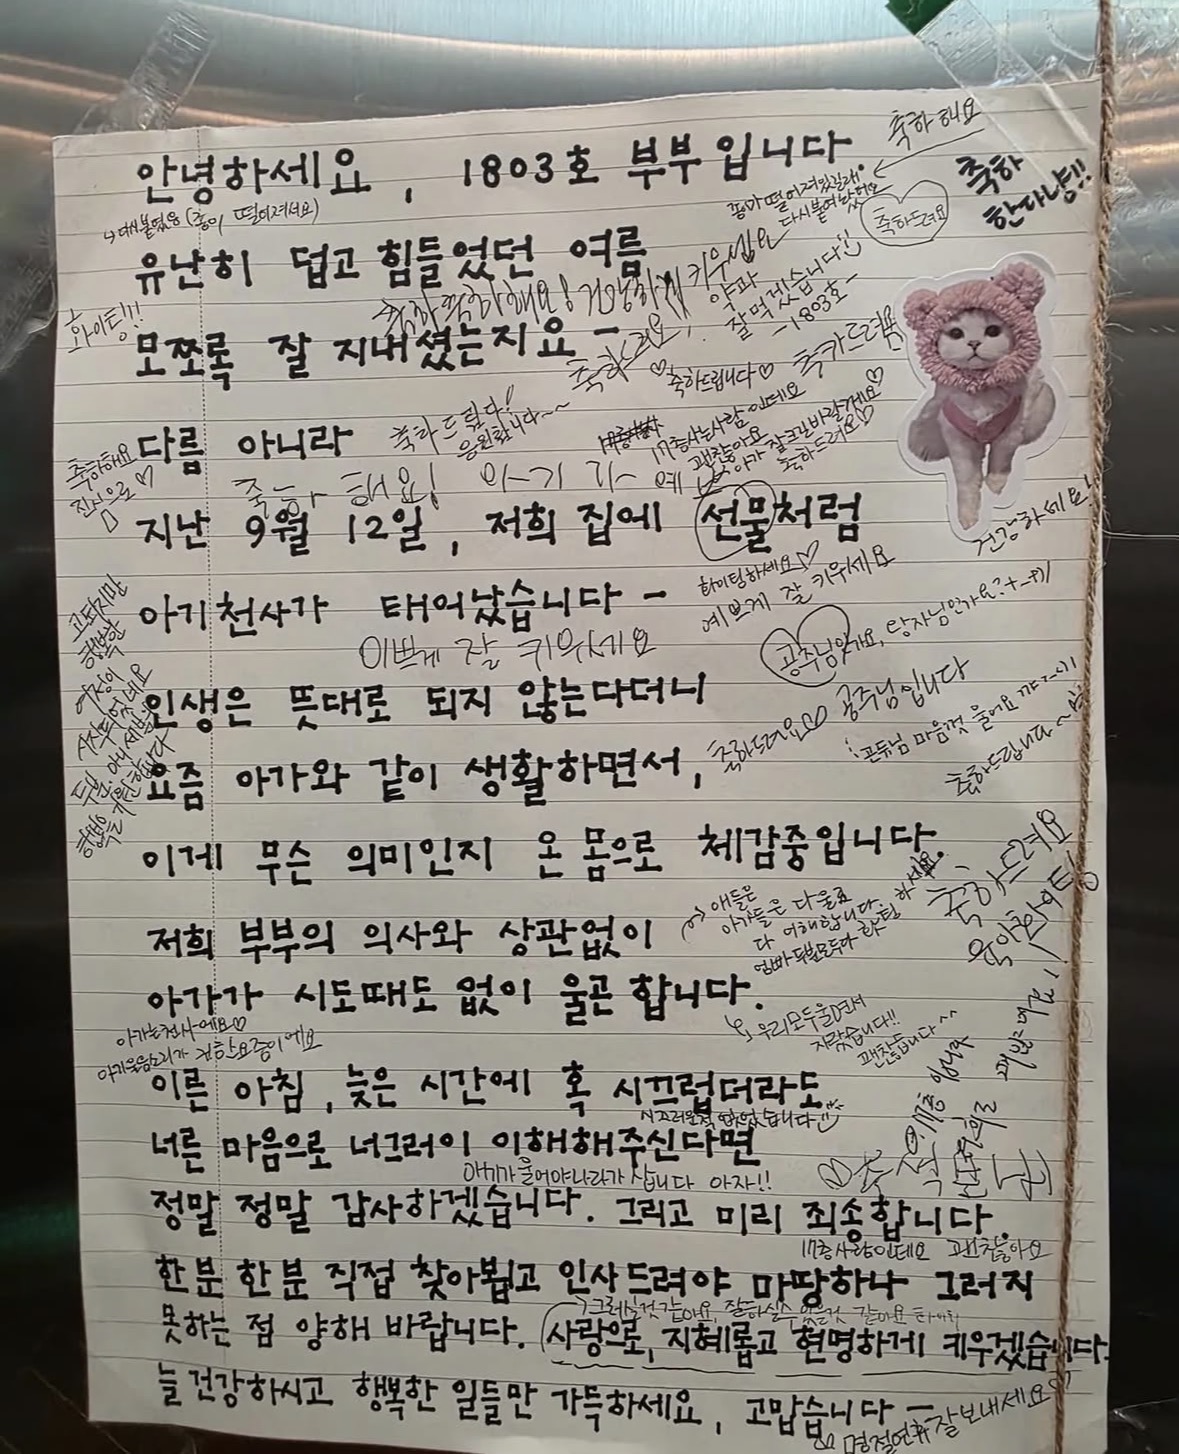 축하해요
안녕하세요, 1803호 부부입니다.
축하
한다냥!!
↳ 다시붙였음 (종이 떨어져서요)
종이 떨어져있길래!
다시붙여놨어요
축하드려요
유난히 덥고 힘들었던 여름
화이팅!!!
축하축하해요! 건강하게 키우십쇼
약과
잘 먹겠습니다
-1803호-
모쪼록 잘 지내셨는지요 -
축하드려요,
♡축하드립니다♡
축하드려요
다름 아니라
축하드립니다!
응원합니다~~
17층사는사람인데요
괜찮아요
아가 잘크길바랄게요♡
축하드려요♡
축하해요
진심으로♡
축하해요!
지난 9월 12일, 저희 집에 선물처럼
건강하세요!
아기천사가 태어났습니다 -
화이팅하세요♡
예쁘게 잘 키우세요
이쁘게 잘 키워세요
공주님인가요, 왕자님인가요?
고되지만
행복한
여정이
시작되었네요
인생은 뜻대로 되지 않는다더니
축하드려요♡♡ 공주님입니다
공듀님 마음껏 울어요
축하드립니다~
요즘 아가와 같이 생활하면서,
이게 무슨 의미인지 온 몸으로 체감중입니다.
축하드려요
저희 부부의 의사와 상관없이
애들은
아가들은 다울죠
다 이해합니다.
엄빠 두분모두다 화팅 하세요
아가가 시도때도 없이 울곤 합니다.
아가는천사에요♡
아기울음소리가 귀한요즘이에요
↳ 우리모두울면서
자랐습니다!!
괜찮습니다^^
이른 아침, 늦은 시간에 혹 시끄럽더라도
시끄러운적 없었습니다
너른 마음으로 너그러이 이해해주신다면
아기가 울어야나라가 삽니다 아자!!
정말 정말 감사하겠습니다. 그리고 미리 죄송합니다.
17층사람인데요 괜찮아요
한분 한분 직접 찾아뵙고 인사드려야 마땅하나 그러지
그러실것 같아요, 잘하실수 있을것 같아요
못하는 점 양해 바랍니다. 사랑으로, 지혜롭고 현명하게 키우겠습니다.
늘 건강하시고 행복한 일들만 가득하세요, 고맙습니다 -
명절연휴 잘보내세요